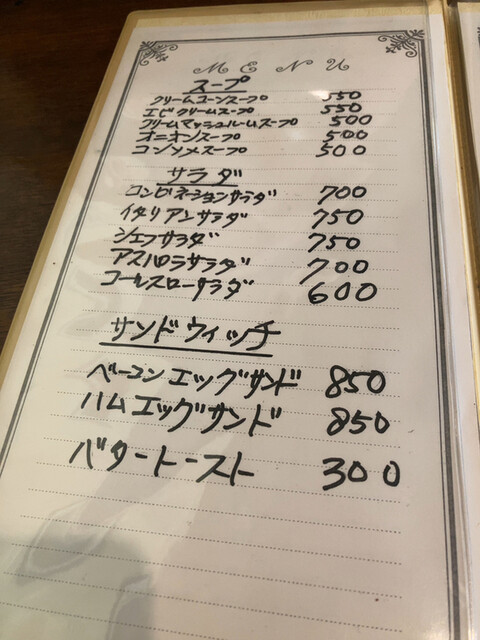 MENU
スープ
クリームコーンスープ 550
エビクリームスープ 550
クリームマッシュルームスープ 500
オニオンスープ 500
コンソメスープ 500
サラダ
コンビネーションサラダ 700
イタリアンサラダ 750
シェフサラダ 750
アスパラサラダ 700
コールスローサラダ 600
サンドウィッチ
ベーコンエッグサンド 850
ハムエッグサンド 850
バタートースト 300